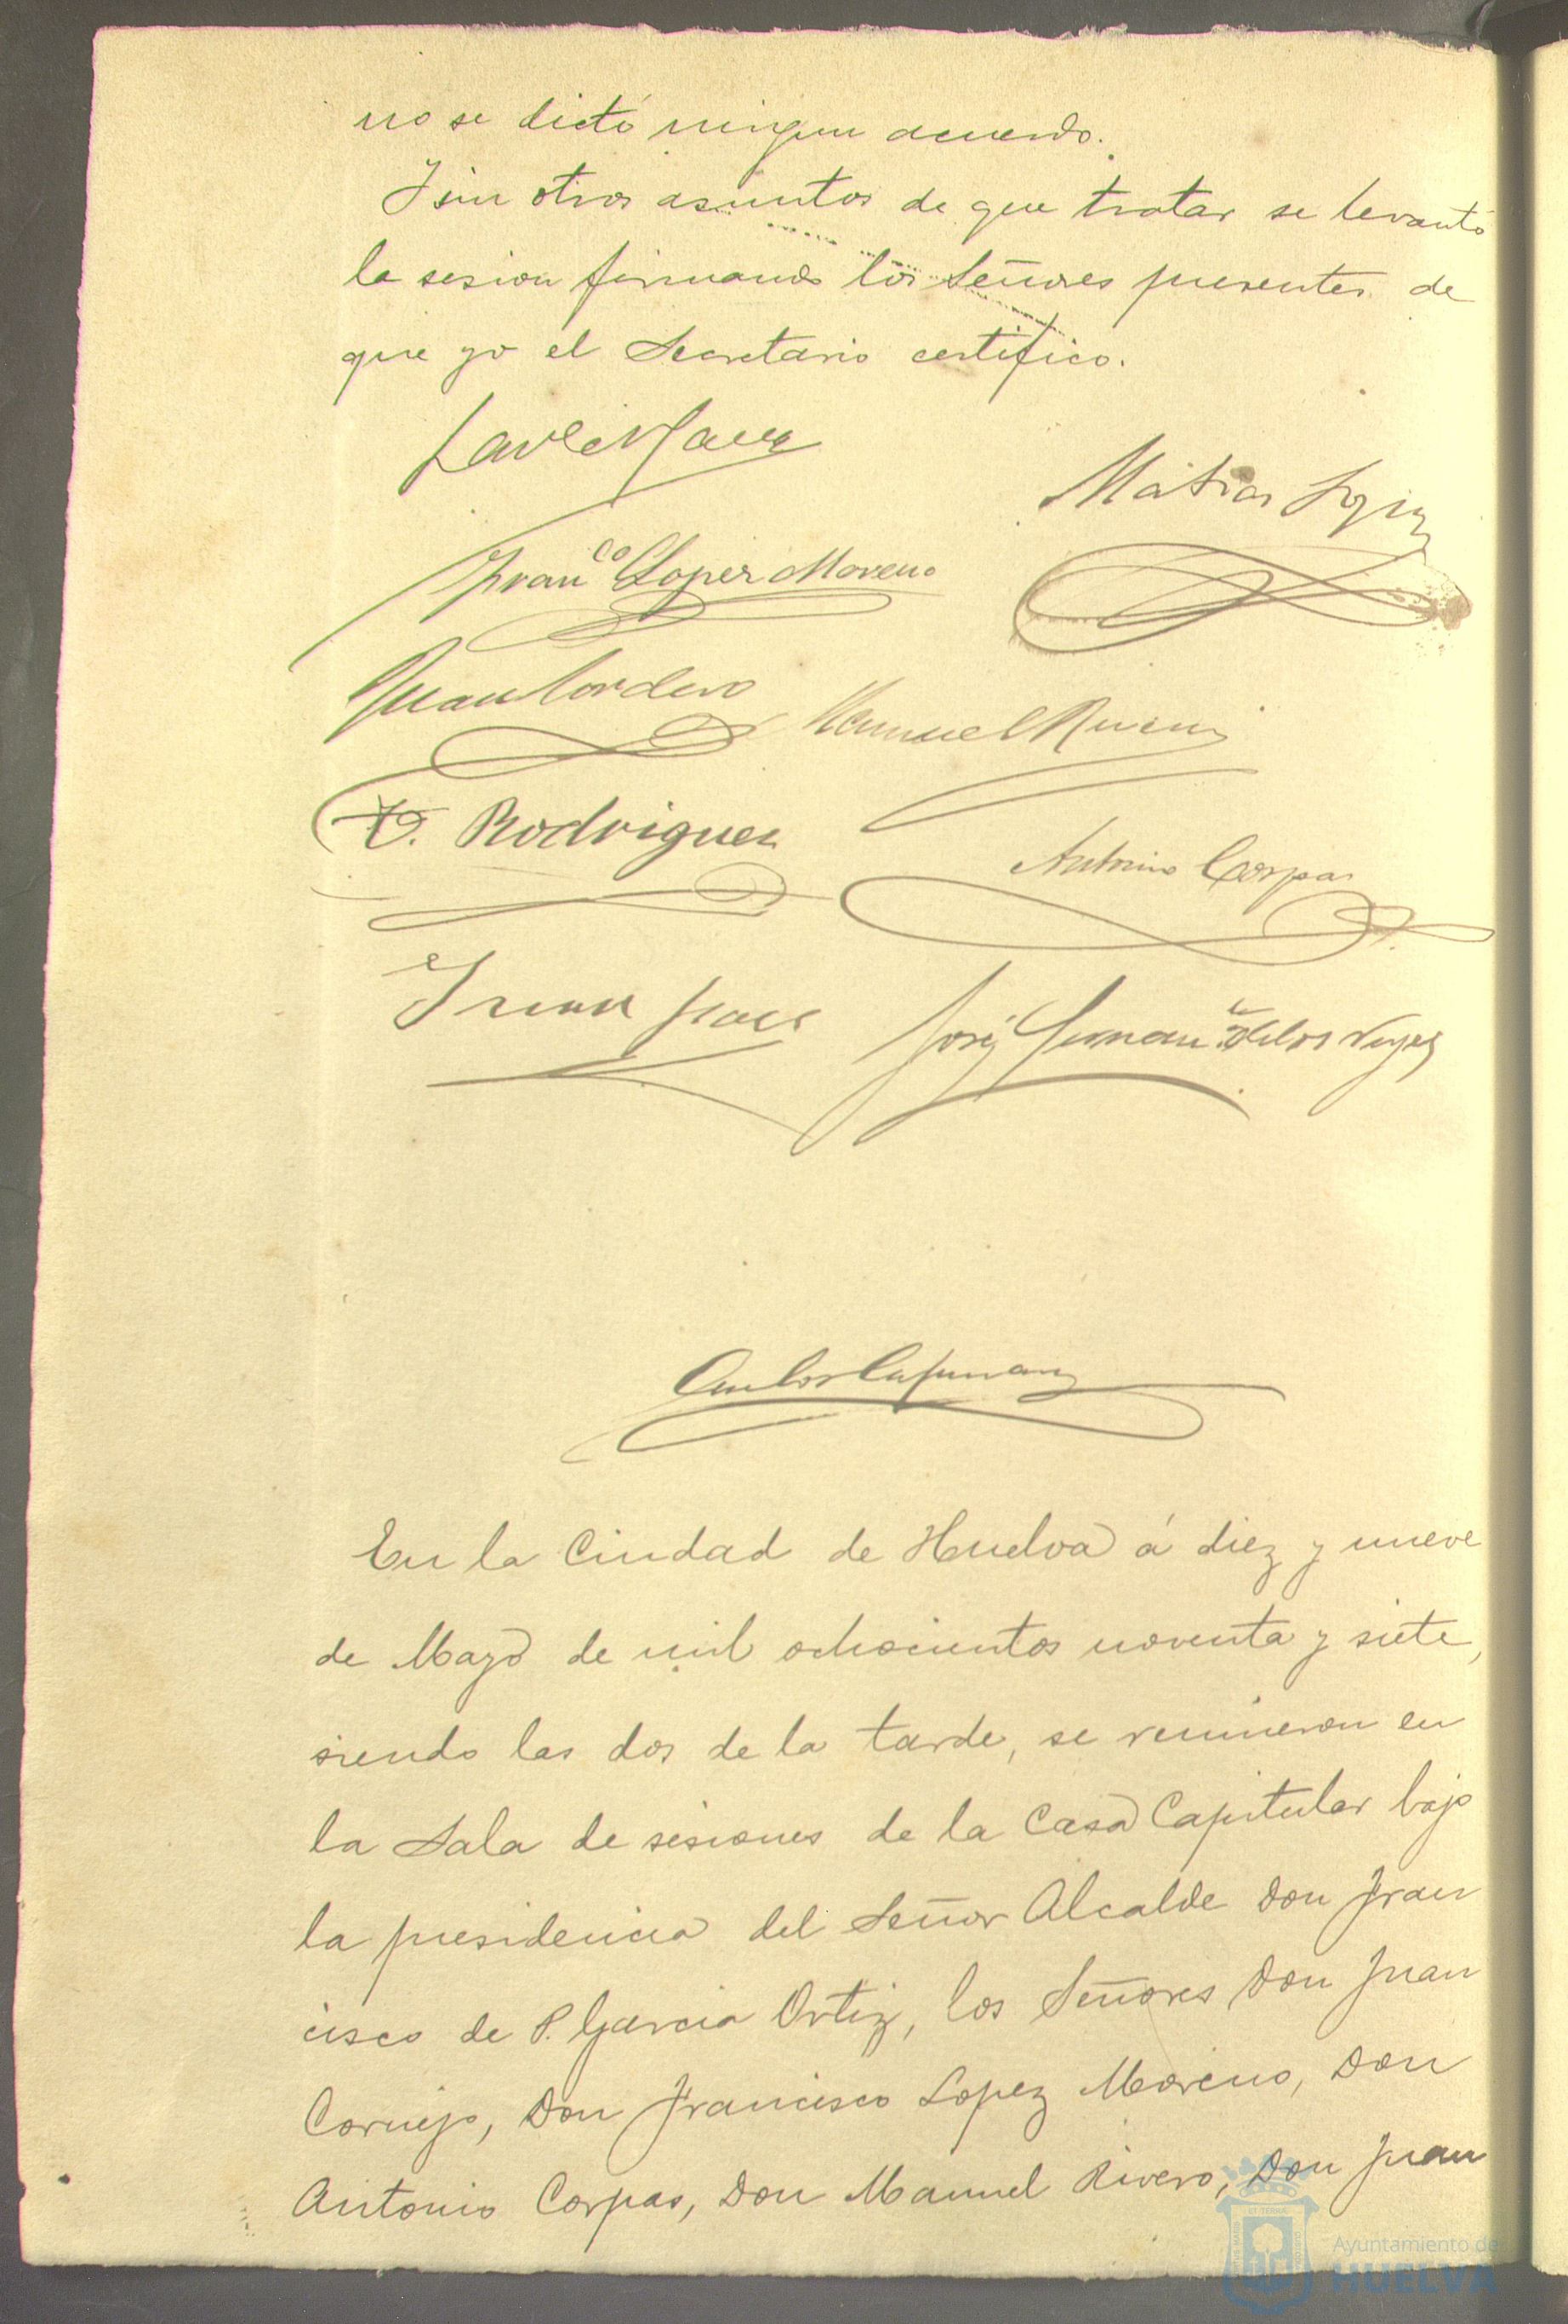 no se dictó ningun acuerdo.
Y sin otros asuntos de que tratar se levantó
la sesion firmando los Señores presentes de
que yo el Secretario certifico.
Matias
Fran.co Lopez Moreno
Juan Cordero
Manuel Rivero
Rodriguez
Antonio Corpas
José
Carlos
En la Ciudad de Huelva á diez y nueve
de Mayo de mil ochocientos noventa y siete,
siendo las dos de la tarde, se reunieron en
la Sala de sesiones de la Casa Capitular bajo
la presidencia del Señor Alcalde Don Fran
cisco de P. Garcia Ortiz, los Señores Don Juan
Cornejo, Don Francisco Lopez Moreno, Don
Antonio Corpas, Don Manuel Rivero, Don Juan
Ayuntamiento de
HUELVA